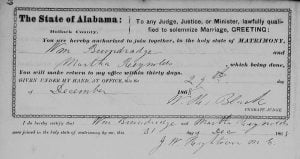 The State of Alabama:
Bullock County.
To any Judge, Justice, or Minister, lawfully qualified to solemnize Marriage, GREETING:
You are hereby authorized to join together, in the holy state of MATRIMONY,
Wm
and
Martha Reynolds
which being done,
You will make return to my office within thirty days.
GIVEN UNDER MY HAND, AT OFFICE, this the 29th day
of December 186
W. H. Black
PROBATE JUDGE.
I do hereby certify Wm and Martha Reynolds
were joined in the holy state of matrimony, this 31 day of Dec 186
J. W. M. G.